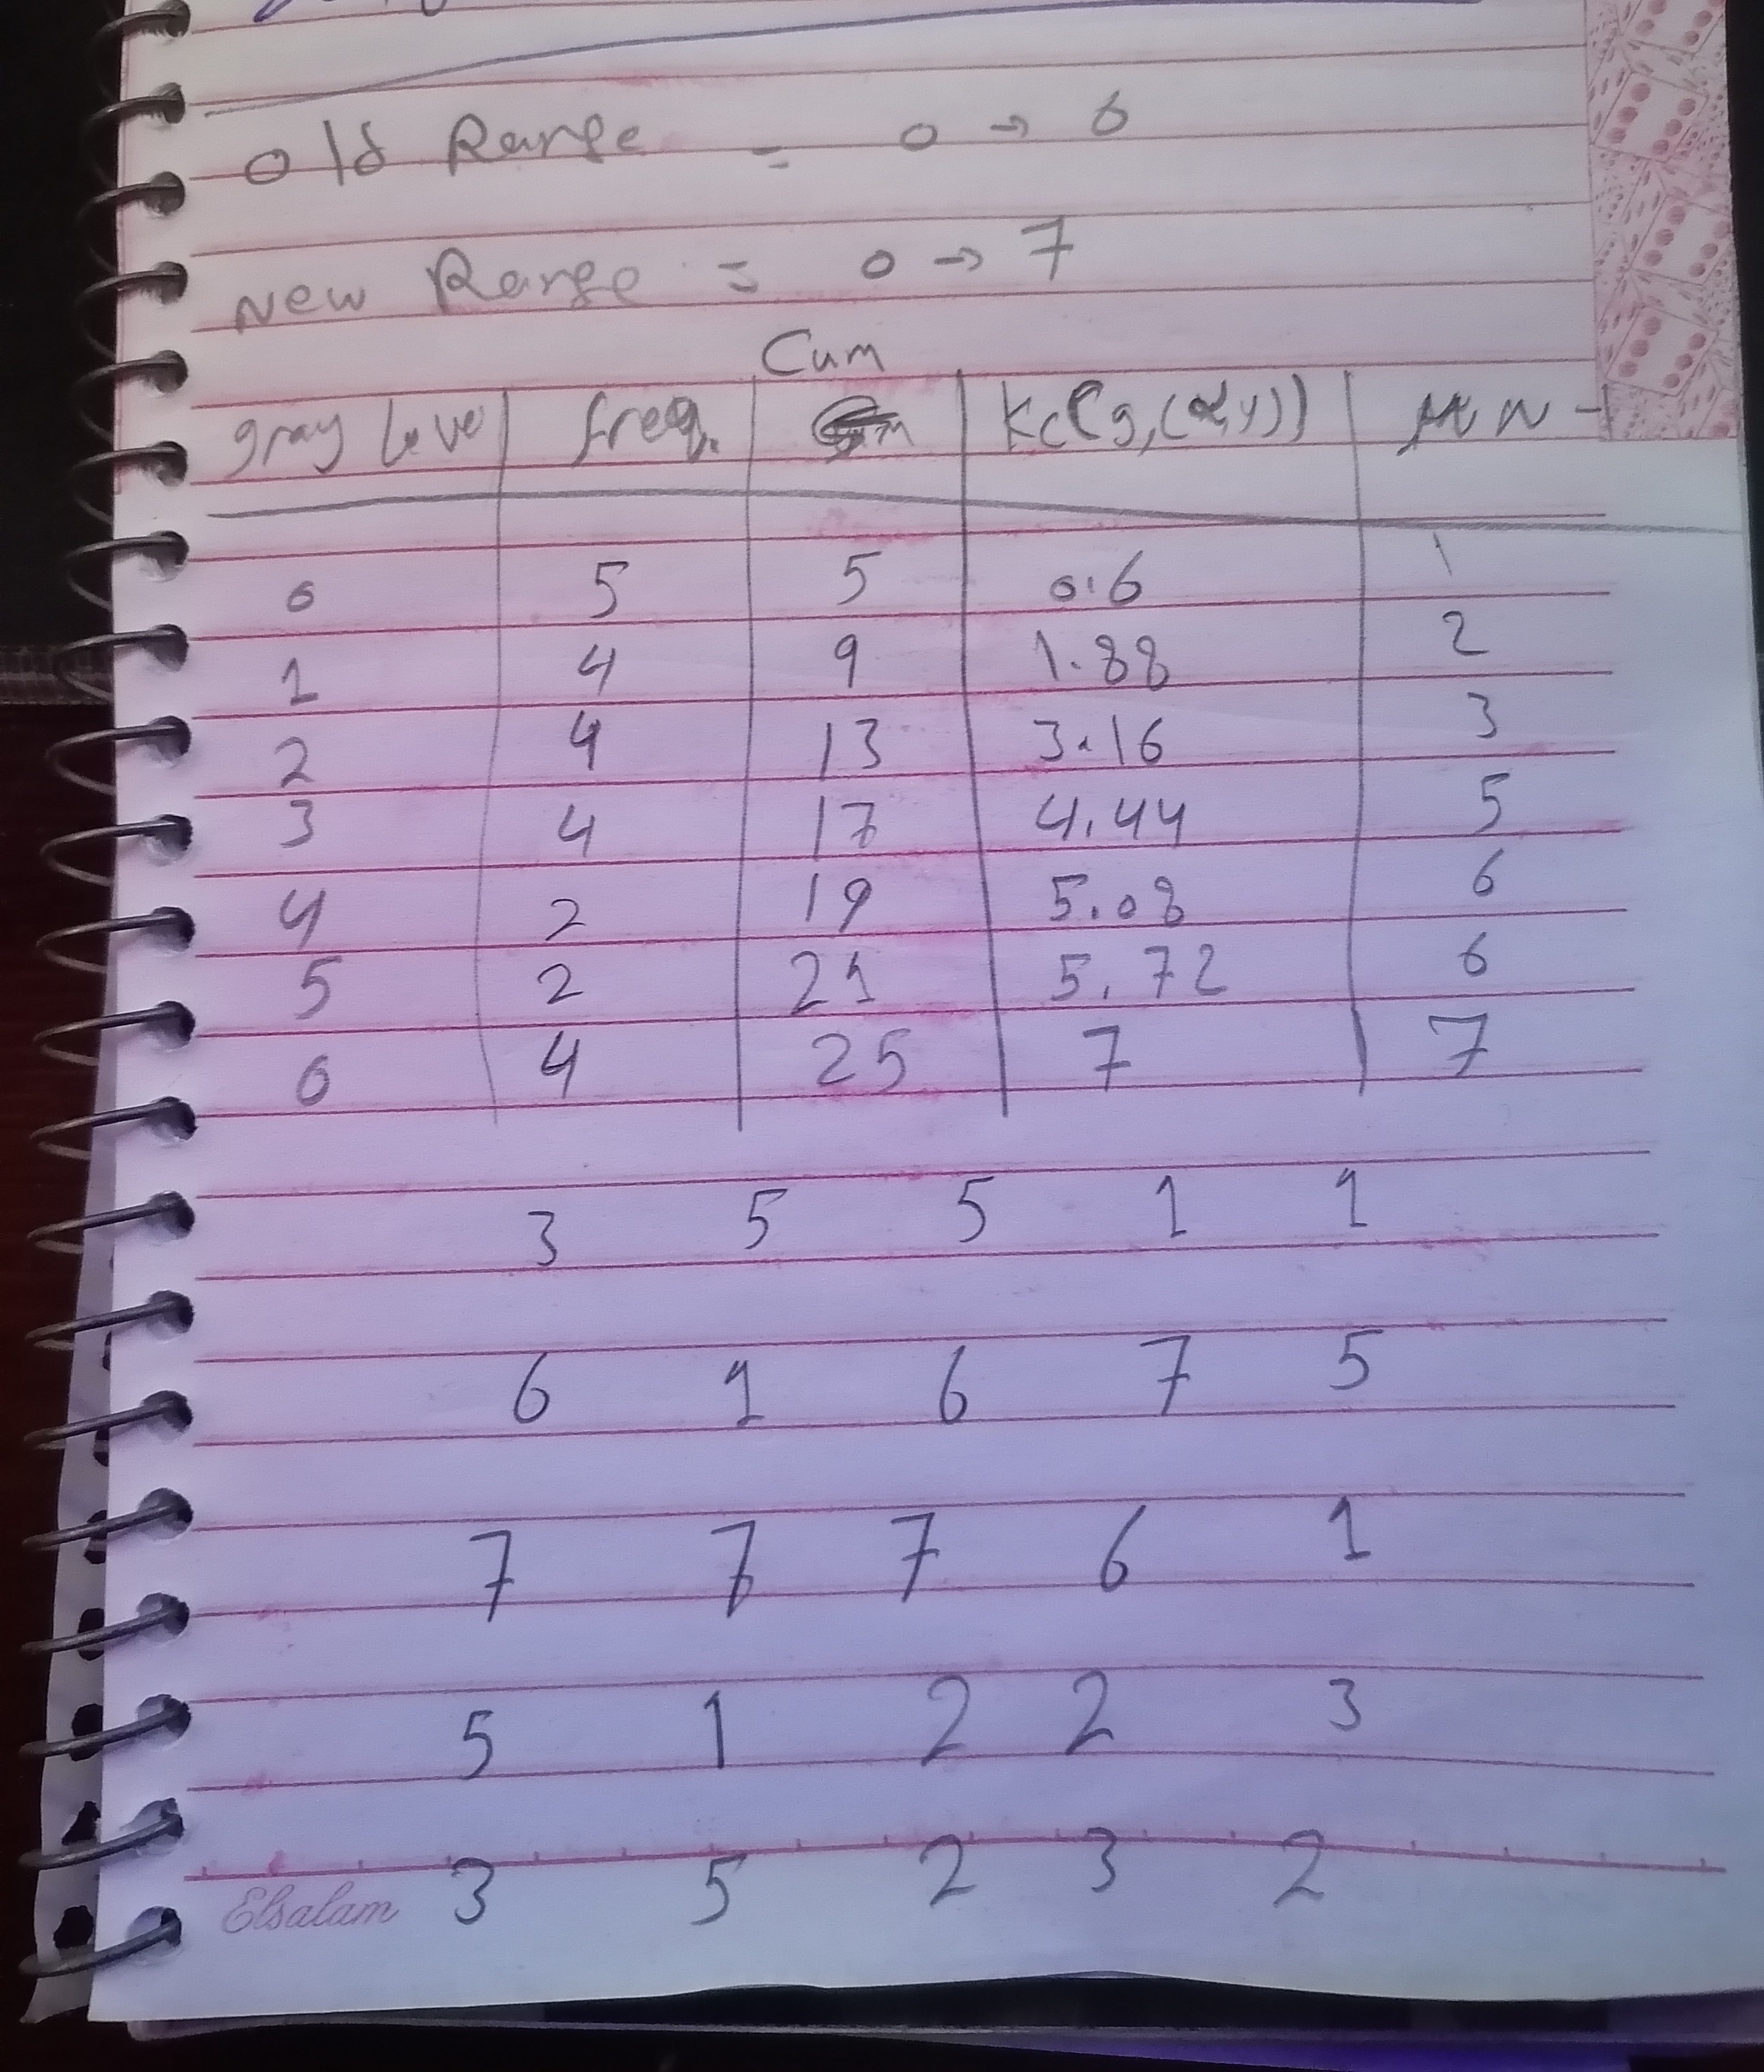 old Range = 0 → 6
New Range = 0 → 7
Cum
gray level freq.
0 5 5 0.6 1
1 4 9 1.88 2
2 4 13 3.16 3
3 4 17 4.44 5
4 2 19 5.08 6
5 2 21 5.72 6
6 4 25 7 7
3 5 5 1 1
6 1 6 7 5
7 7 7 6 1
5 1 2 2 3
3 5 2 3 2
Elsalam